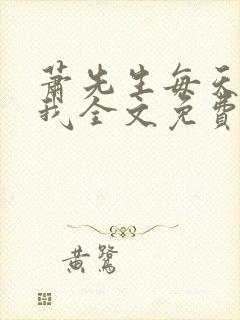 萧先生每天
我全文免费
黄鹭